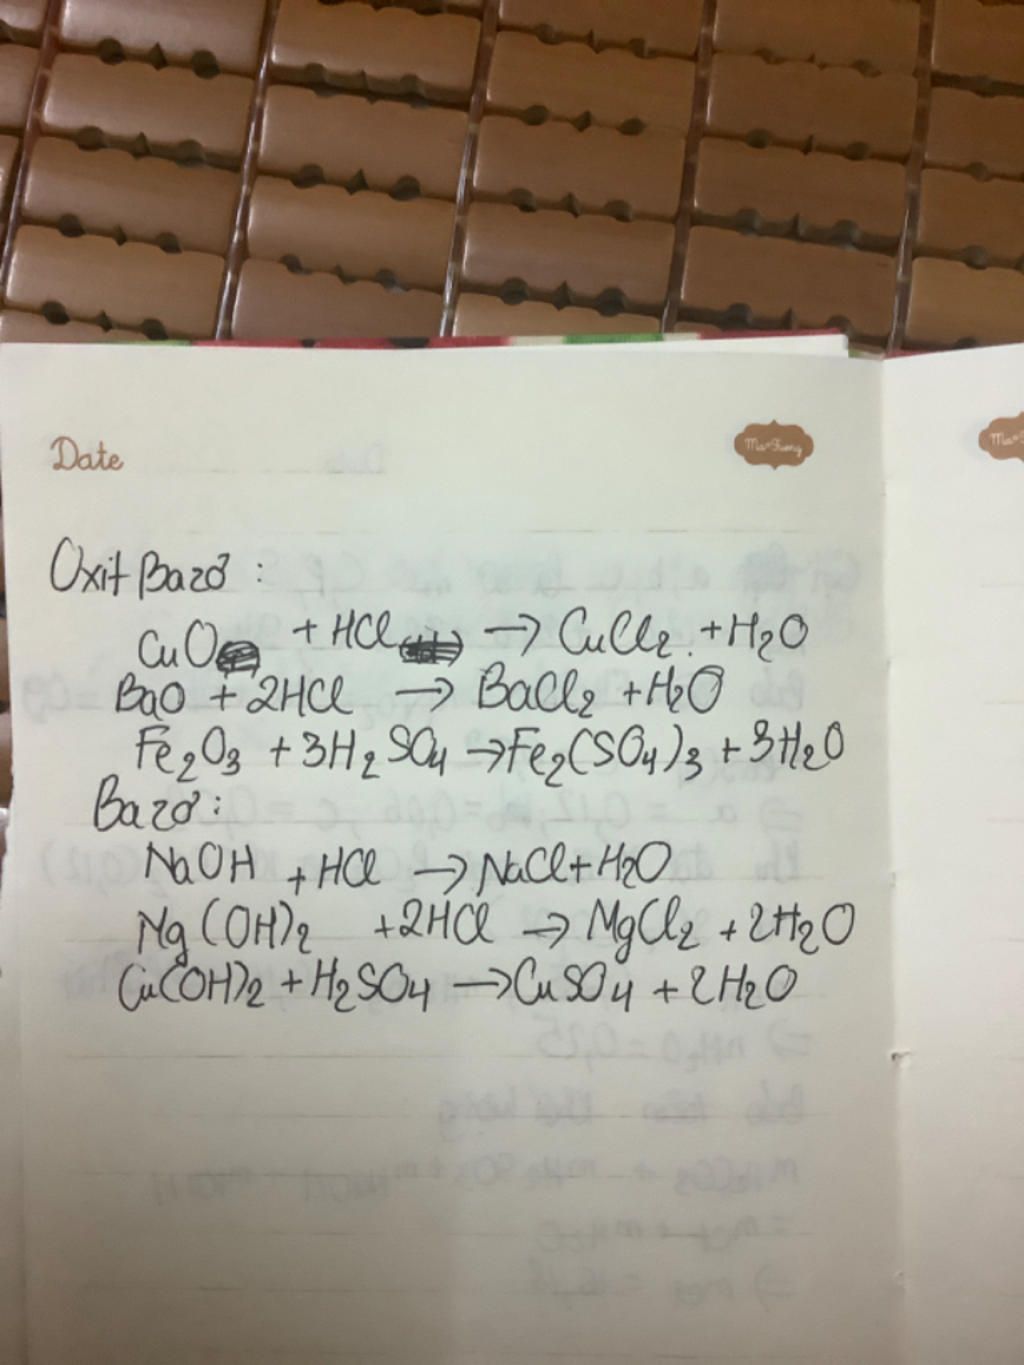 Date
Ma-Tương
Oxit Bazơ :
CuO + HCl → CuCl2 . + H2O
BaO + 2HCl → BaCl2 + H2O
Fe2O3 + 3H2SO4 → Fe2(SO4)3 + 3H2O
Bazơ :
NaOH + HCl → NaCl + H2O
Mg(OH)2 + 2HCl → MgCl2 + 2H2O
Cu(OH)2 + H2SO4 → CuSO4 + 2H2O